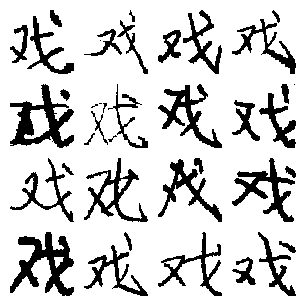 戏戏戏戏
戏戏戏戏
戏戏戏戏
戏戏戏戏